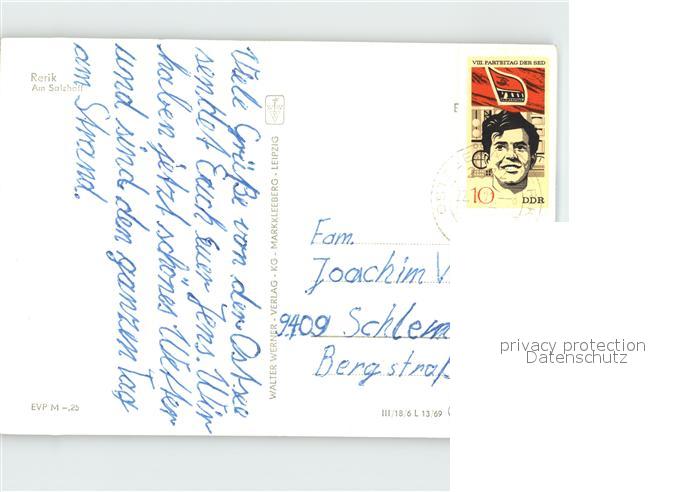 Rerik
Am Salzhaff
Viele Grüße von der Ostsee
sendet Euch Euer Jens. Wir
haben jetzt schönes Wetter
und sind den ganzen Tag
am Strand.
EVP M -,25
WALTER WERNER - VERLAG - KG - MARKKLEEBERG - LEIPZIG
III/18/6 L 13/69
VIII. PARTEITAG DER SED
10
DDR
Fam.
Joachim
9409 Schlem
Bergstraß
privacy protection
Datenschutz